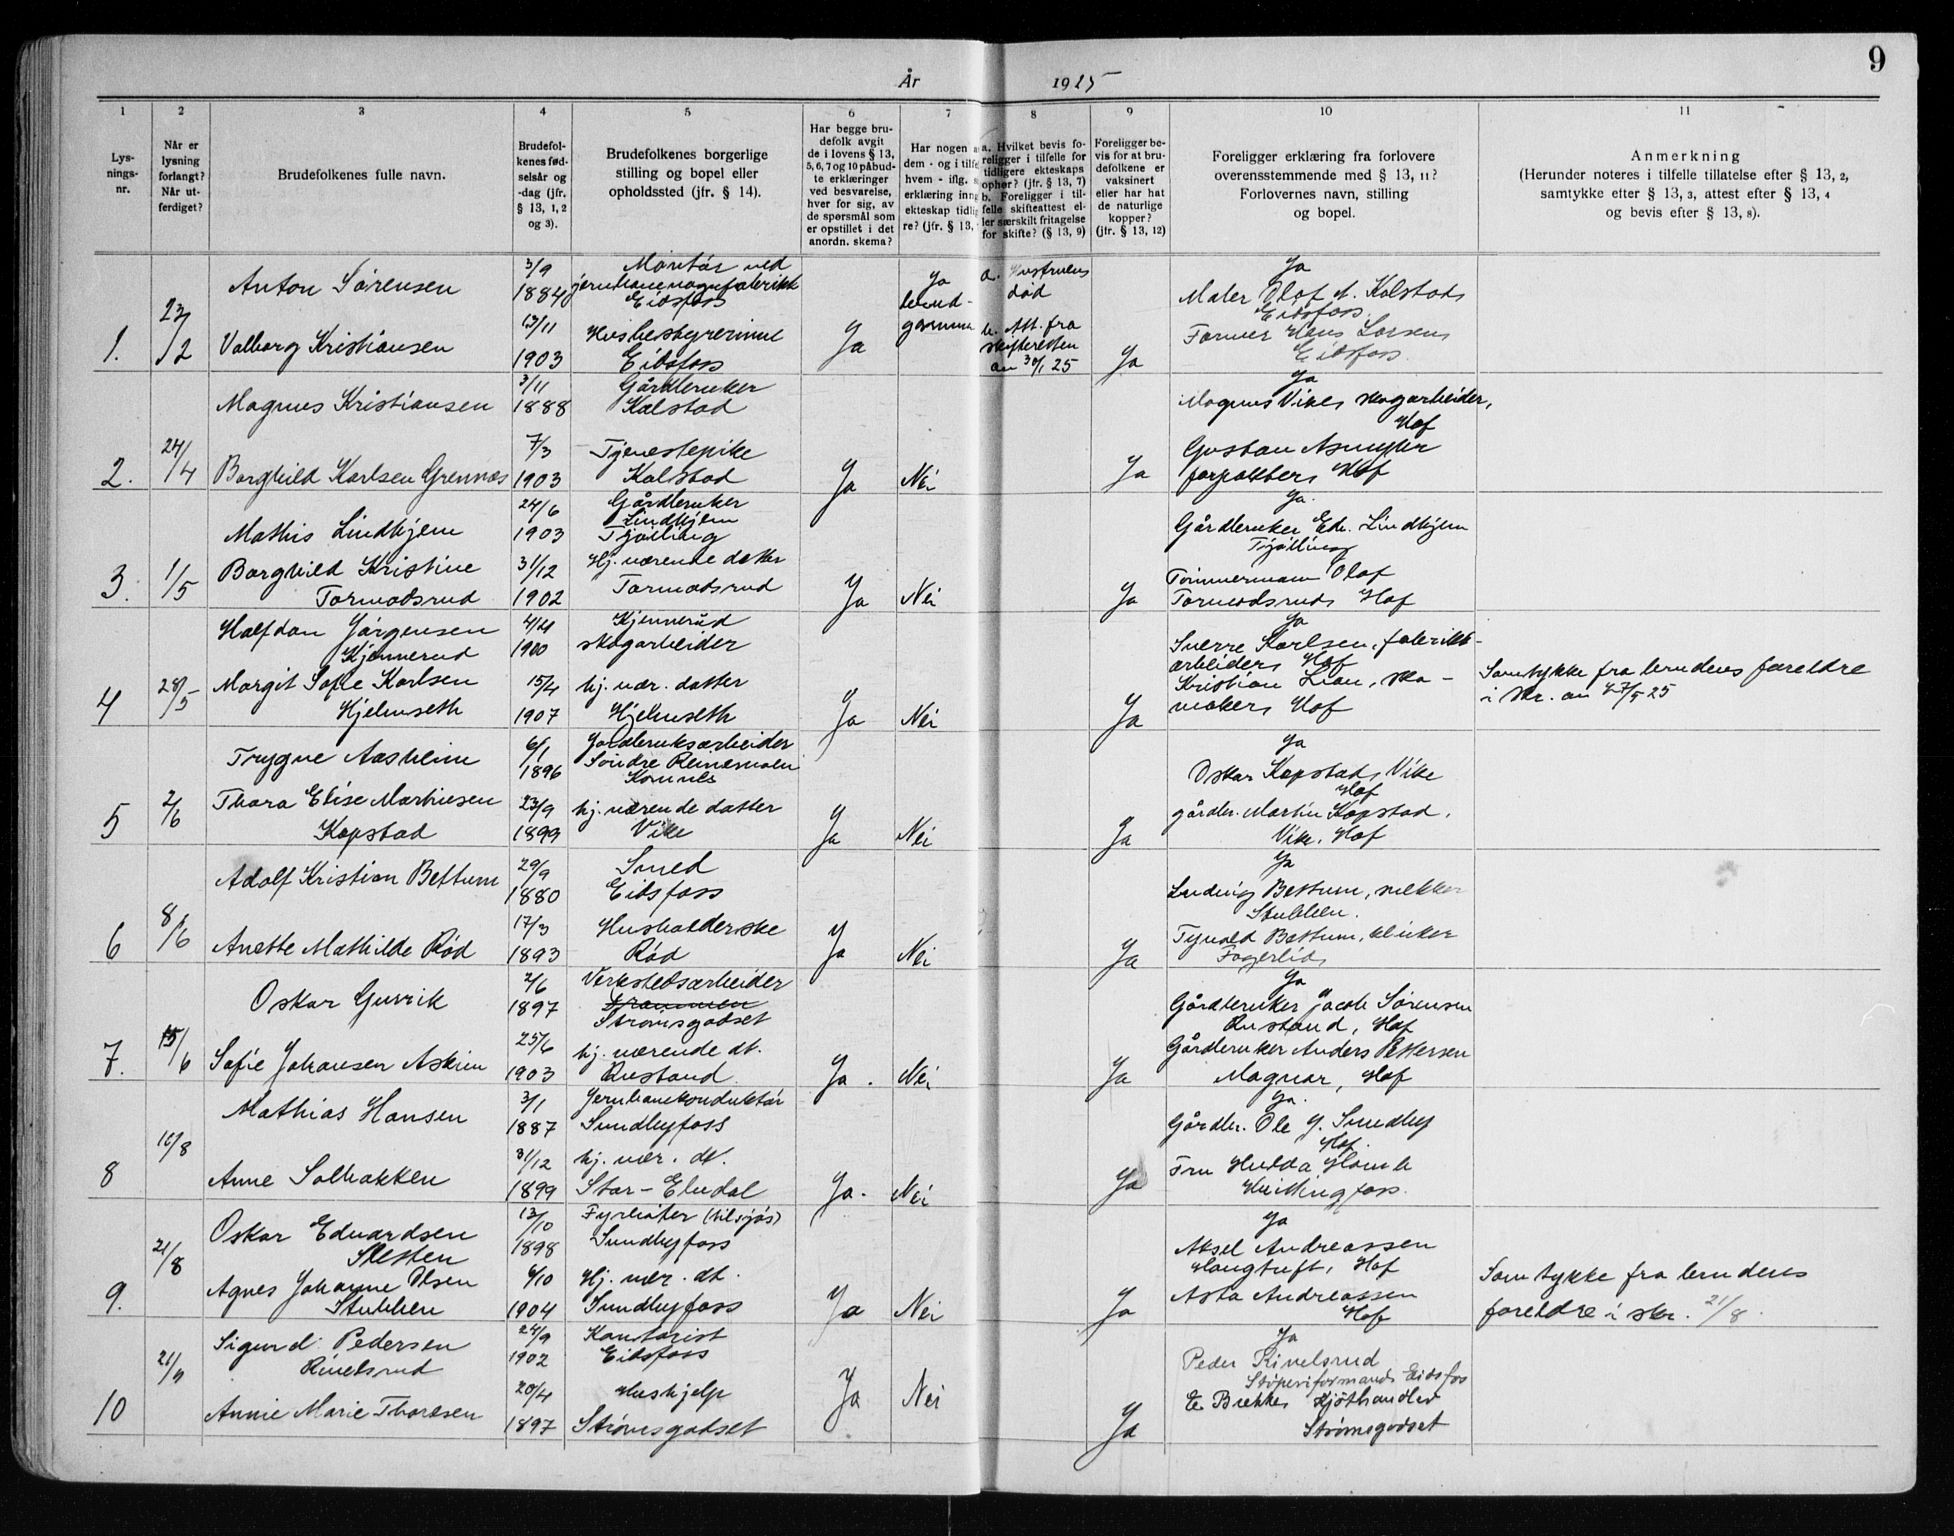 9
År 1925
1 2 3 4 5 6 7 8 9 10 11
Lys-
nings-
nr.
Når er
lysning
forlangt?
Når ut-
ferdiget?
Brudefolkenes fulle navn.
Brudefol-
kenes fød-
selsår og
-dag (jfr.
§ 13, 1, 2
og 3).
Brudefolkenes borgerlige
stilling og bopel eller
opholdssted (jfr. § 14).
Har begge bru-
defolk avgit
de i lovens § 13,
5, 6, 7 og 10 påbud-
te erklæringer
ved besvarelse,
hver for sig, av
de spørsmål som
er opstillet i det
anordn. skema?
Har nogen a
dem - og i tilfe
hvem - iflg. s
erklæring inng
ekteskap tidlig
re? (jfr. § 13,
a. Hvilket bevis fo-
religger i tilfelle for
tidligere ekteskaps
ophør? (jfr. § 13, 7)
b. Foreligger i til-
felle skifteattest el-
ler særskilt fritagelse
for skifte? (§ 13, 9)
Foreligger be-
vis for at bru-
defolkene er
vaksinert
eller har hat
de naturlige
kopper?
(jfr. § 13, 12)
Foreligger erklæring fra forlovere
overensstemmende med § 13, 11?
Forlovernes navn, stilling
og bopel.
Anmerkning
(Herunder noteres i tilfelle tillatelse efter § 13, 2,
samtykke efter § 13, 3, attest efter § 13, 4
og bevis efter § 13, 8).
1. 23/2
Anton Sørensen
3/9 1884
Montør ved
jernbanevognfabrikk
Eidsfoss
Valborg Kristiansen
13/11 1903
Husbestyrerinne
Eidsfoss
Ja
Ja
brud-
gommen
a. Hustruens
død
b. Att. fra
skifteretten
av 30/1 25
Ja
Ja
Maler Olaf A. Kolstad,
Eidsfoss.
Former Hans Larsen,
Eidsfoss.
2. 24/4
Magnus Kristiansen
3/11 1888
Gårdbruker
Kolstad
Borghild Karlsen Grennes
7/3 1903
Tjenestepike
Kolstad
Ja
Nei
Ja
Ja
Magnus Vike, skogarbeider,
Hof
Gustav Asmyhr
forpakter, Hof
3. 1/5
Mathis Lindhjem
24/6 1903
Gårdbruker
Lindhjem
Tjølling
Borghild Kristine
Tormodsrud
31/12 1902
Hj. værende datter
Tormodsrud
Ja
Nei
Ja
Ja.
Gårdbruker Edv. Lindhjem
Tjølling
Tømmermann Olaf
Tormodsrud, Hof
4 28/5
Halfdan Jørgensen
Kjennerud
4/4 1900
Kjennerud
skogarbeider
Margit Sofie Karlsen
Hjelmseth
15/4 1907
hj. vær. datter
Hjelmseth
Ja
Nei
Ja
Ja
Sverre Karlsen, fabrikk-
arbeider, Hof
Kristian Lian, sko-
maker, Hof
Samtykke fra brudens foreldre
i skr. av 27/5 25
5 2/6
Trygve Aasheim
6/1 1896
Jordbruksarbeider
Søndre
Komnes
Thora Elise Mathiesen
Kopstad
23/9 1899
hj. værende datter
Vike
Ja
Nei
Ja
Ja
Oskar Kopstad, Vike
Hof
gårdbr. Martin Kopstad,
Vike, Hof
6 8/6
Adolf Kristian Bettum
29/9 1880
Smed
Eidsfoss
Anette Mathilde Rød
17/3 1893
Husholderske
Rød
Ja
Nei
Ja
Ja
Ludvig Bettum, snekker
Stubben.
Bettum,
Fagerlid,
7. 15/6
Oskar Gunrik
2/6 1897
Verkstedsarbeider
Drammen
Strømsgodset
Sofie Johansen Askim
25/6 1903
hj. værende dt.
Rustand
Ja.
Nei
Ja
Ja
Gårdbruker Jacob Sørensen
Rustand, Hof
Gårdbruker Anders Pettersen
Magnor, Hof
8 10/8
Mathias Hansen
3/1 1887
Jernbanekonduktør
Sundbyfoss
Anne Solbakken
31/12 1899
hj. vær. dt.
Stor-Elvdal
Ja.
Nei
Ja
Ja.
Gårdbr. Ole J. Sundby
Hof.
Fru Hulda
Hvittingfoss.
9. 21/8
Oskar Edvardsen
13/10 1898
Fyrbøter (tilsjøs)
Sundbyfoss
Agnes Johanne Olsen
Stubben
6/10 1904
Hj. vær. dt.
Sundbyfoss
Ja
Nei
Ja
Ja
Aksel Andreassen
Haugtuft, Hof
Asta Andreassen
Hof
Samtykke fra brudens
foreldre i skr. 21/8.
10 21/9
Sigurd Pedersen
Rivelsrud
24/9 1902
Kontorist
Eidsfoss
Annie Marie Thoresen
20/4 1897
Hushjelp
Strømsgodset
Ja
Nei
Ja
Ja
Peder Rivelsrud
Støperiformand, Eidsfos
E. Brekke, Kjøthandler
Strømsgodset